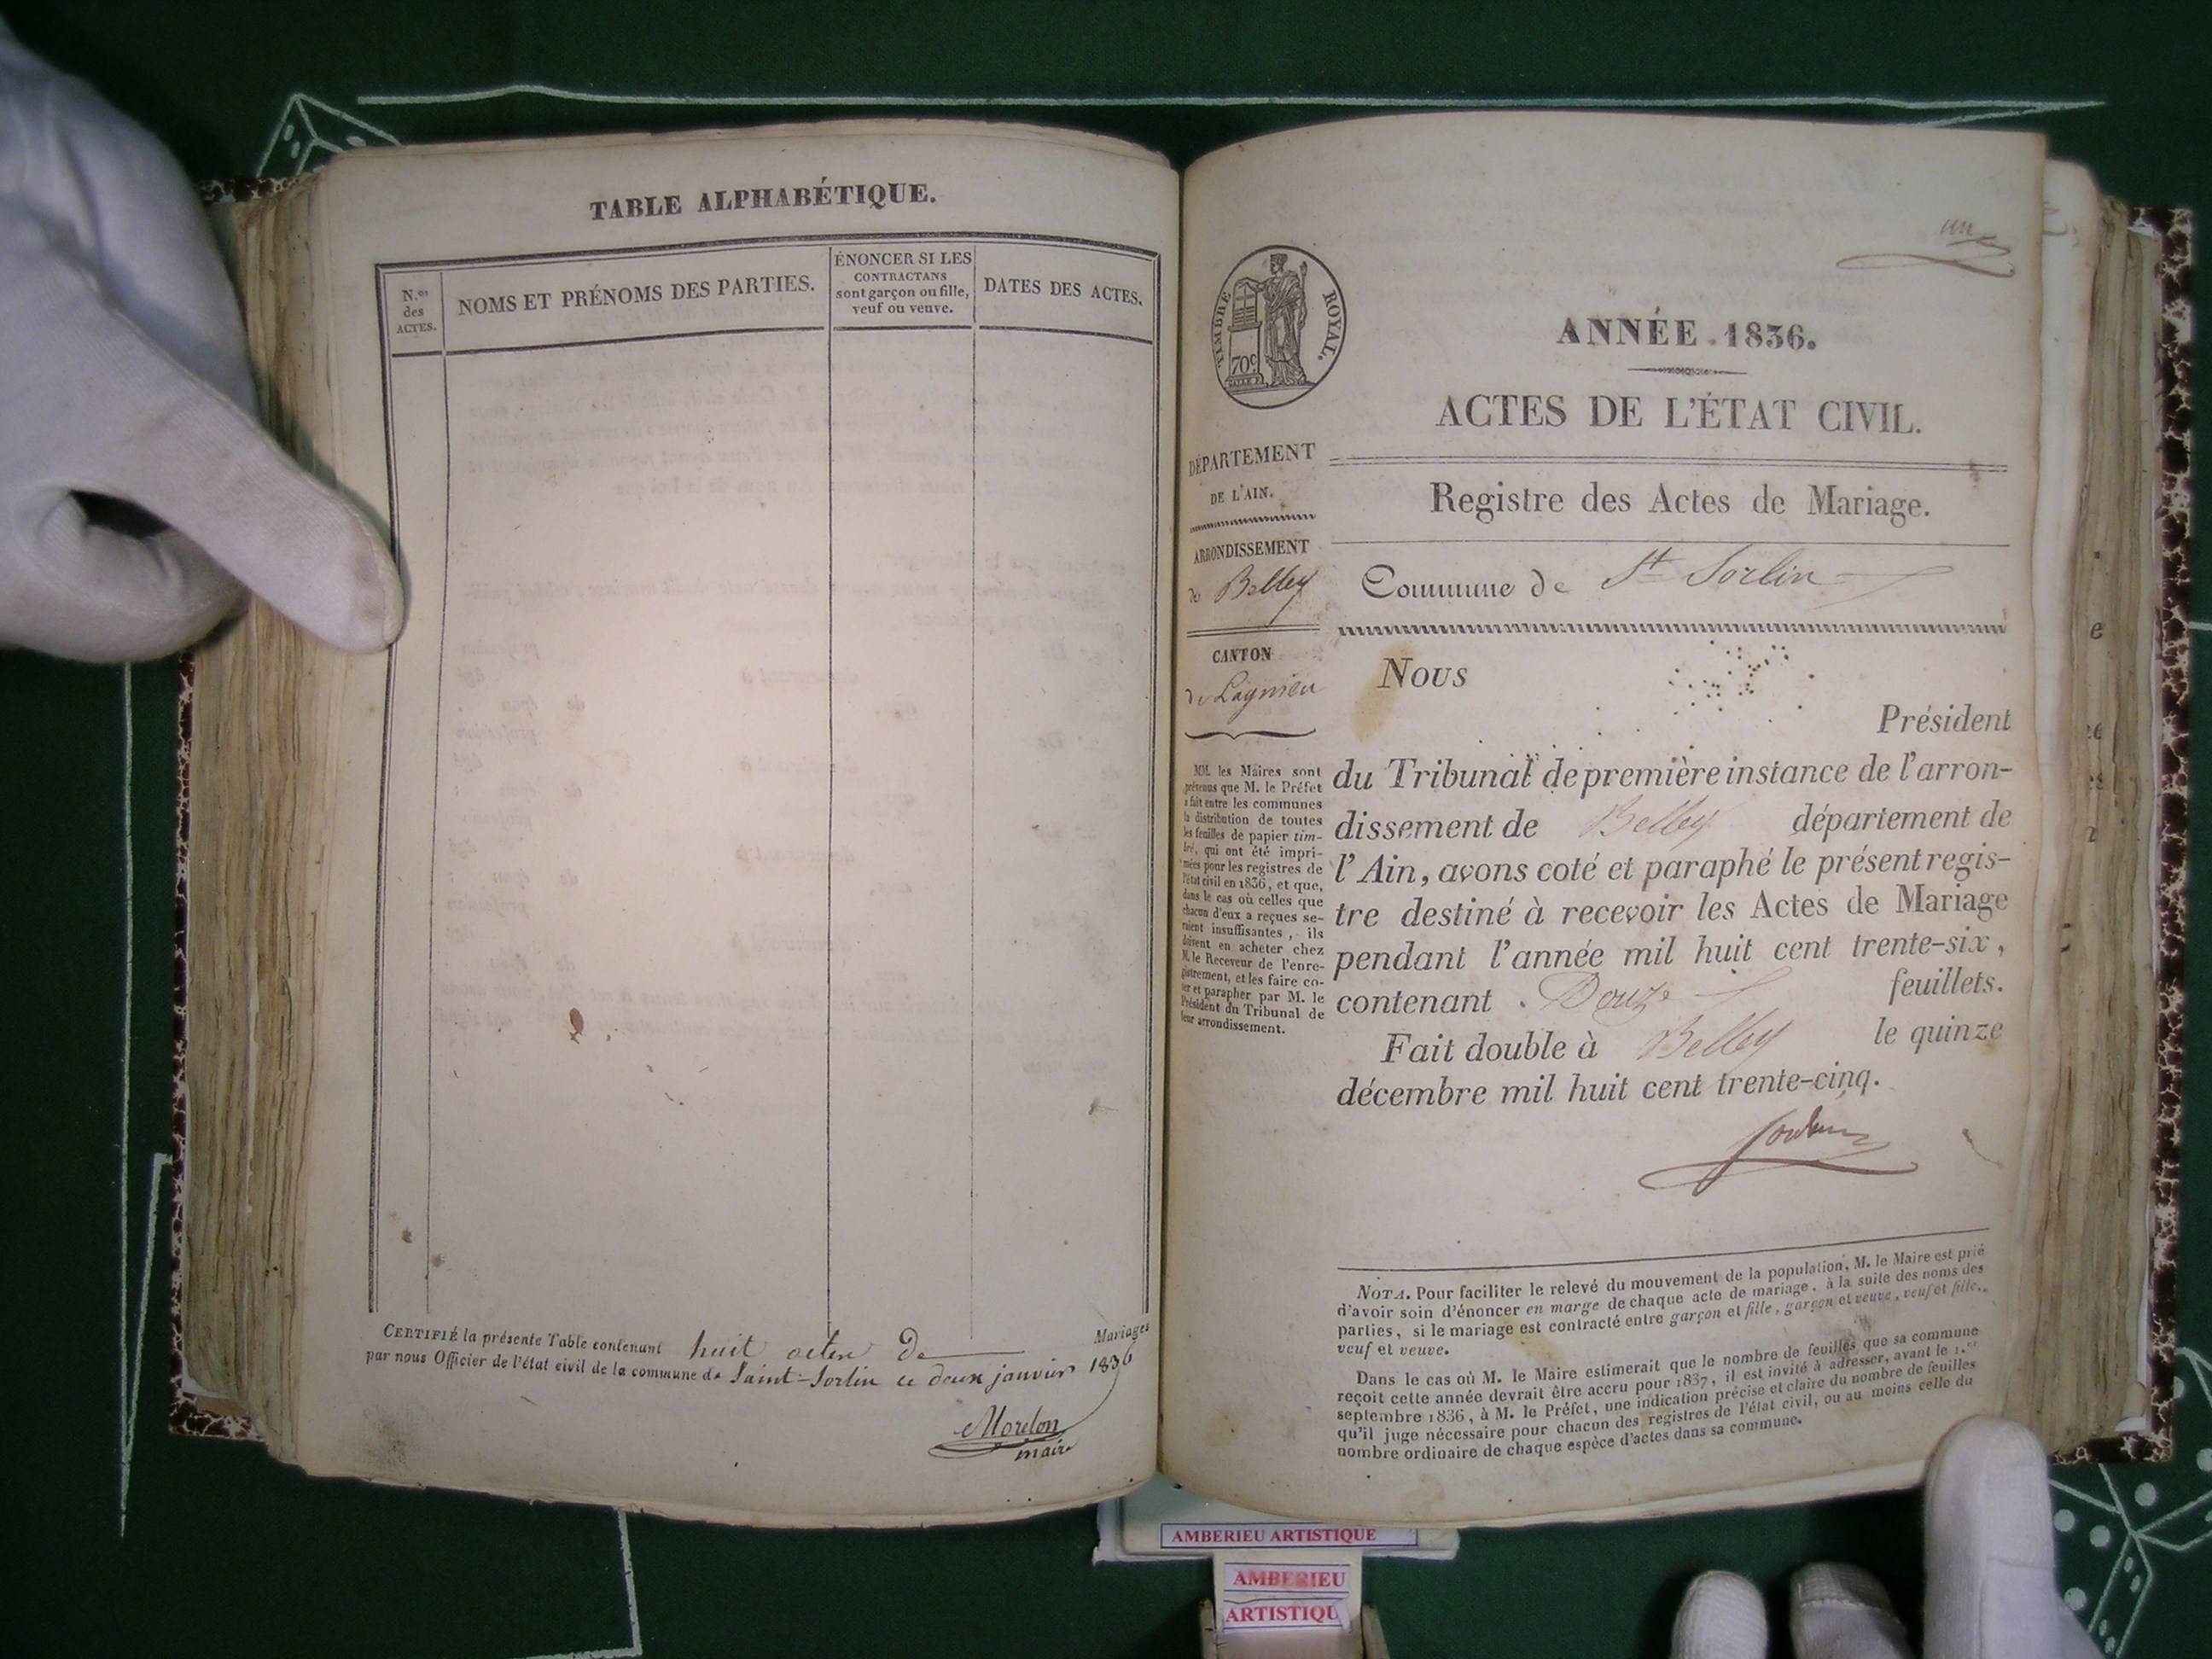 TABLE ALPHABÉTIQUE.
N.os
des
ACTES.
NOMS ET PRÉNOMS DES PARTIES.
ÉNONCER SI LES
CONTRACTANS
sont garçon ou fille,
veuf ou veuve.
DATES DES ACTES.
CERTIFIÉ la présente Table contenant huit actes de Mariages
par nous Officier de l'état civil de la commune de Saint-Sorlin ce deux janvier 1836
Morelon
maire
un
TIMBRE ROYAL.
70c
ANNÉE 1836.
ACTES DE L'ÉTAT CIVIL.
Registre des Actes de Mariage.
Commune de St Sorlin
DÉPARTEMENT
DE L'AIN.
ARRONDISSEMENT
de Belley
CANTON
de Lagnieu
MM. les Maires sont
prévenus que M. le Préfet
a fait entre les communes
la distribution de toutes
les feuilles de papier tim-
bré, qui ont été impri-
mées pour les registres de
l'état civil en 1836, et que,
dans le cas où celles que
chacun d'eux a reçues se-
raient insuffisantes, ils
doivent en acheter chez
M. le Receveur de l'enre-
gistrement, et les faire co-
ter et parapher par M. le
Président du Tribunal de
leur arrondissement.
Nous
Président
du Tribunal de première instance de l'arron-
dissement de Belley département de
l'Ain, avons coté et paraphé le présent regis-
tre destiné à recevoir les Actes de Mariage
pendant l'année mil huit cent trente-six,
contenant Douze feuillets.
Fait double à Belley le quinze
décembre mil huit cent trente-cinq.
NOTA. Pour faciliter le relevé du mouvement de la population, M. le Maire est prié
d'avoir soin d'énoncer en marge de chaque acte de mariage, à la suite des noms des
parties, si le mariage est contracté entre garçon et fille, garçon et veuve, veuf et fille,
veuf et veuve.
Dans le cas où M. le Maire estimerait que le nombre de feuilles que sa commune
reçoit cette année devrait être accru pour 1837, il est invité à adresser, avant le 1.er
septembre 1836, à M. le Préfet, une indication précise et claire du nombre de feuilles
qu'il juge nécessaire pour chacun des registres de l'état civil, ou au moins celle du
nombre ordinaire de chaque espèce d'actes dans sa commune.
AMBERIEU ARTISTIQUE
AMBERIEU
ARTISTIQU